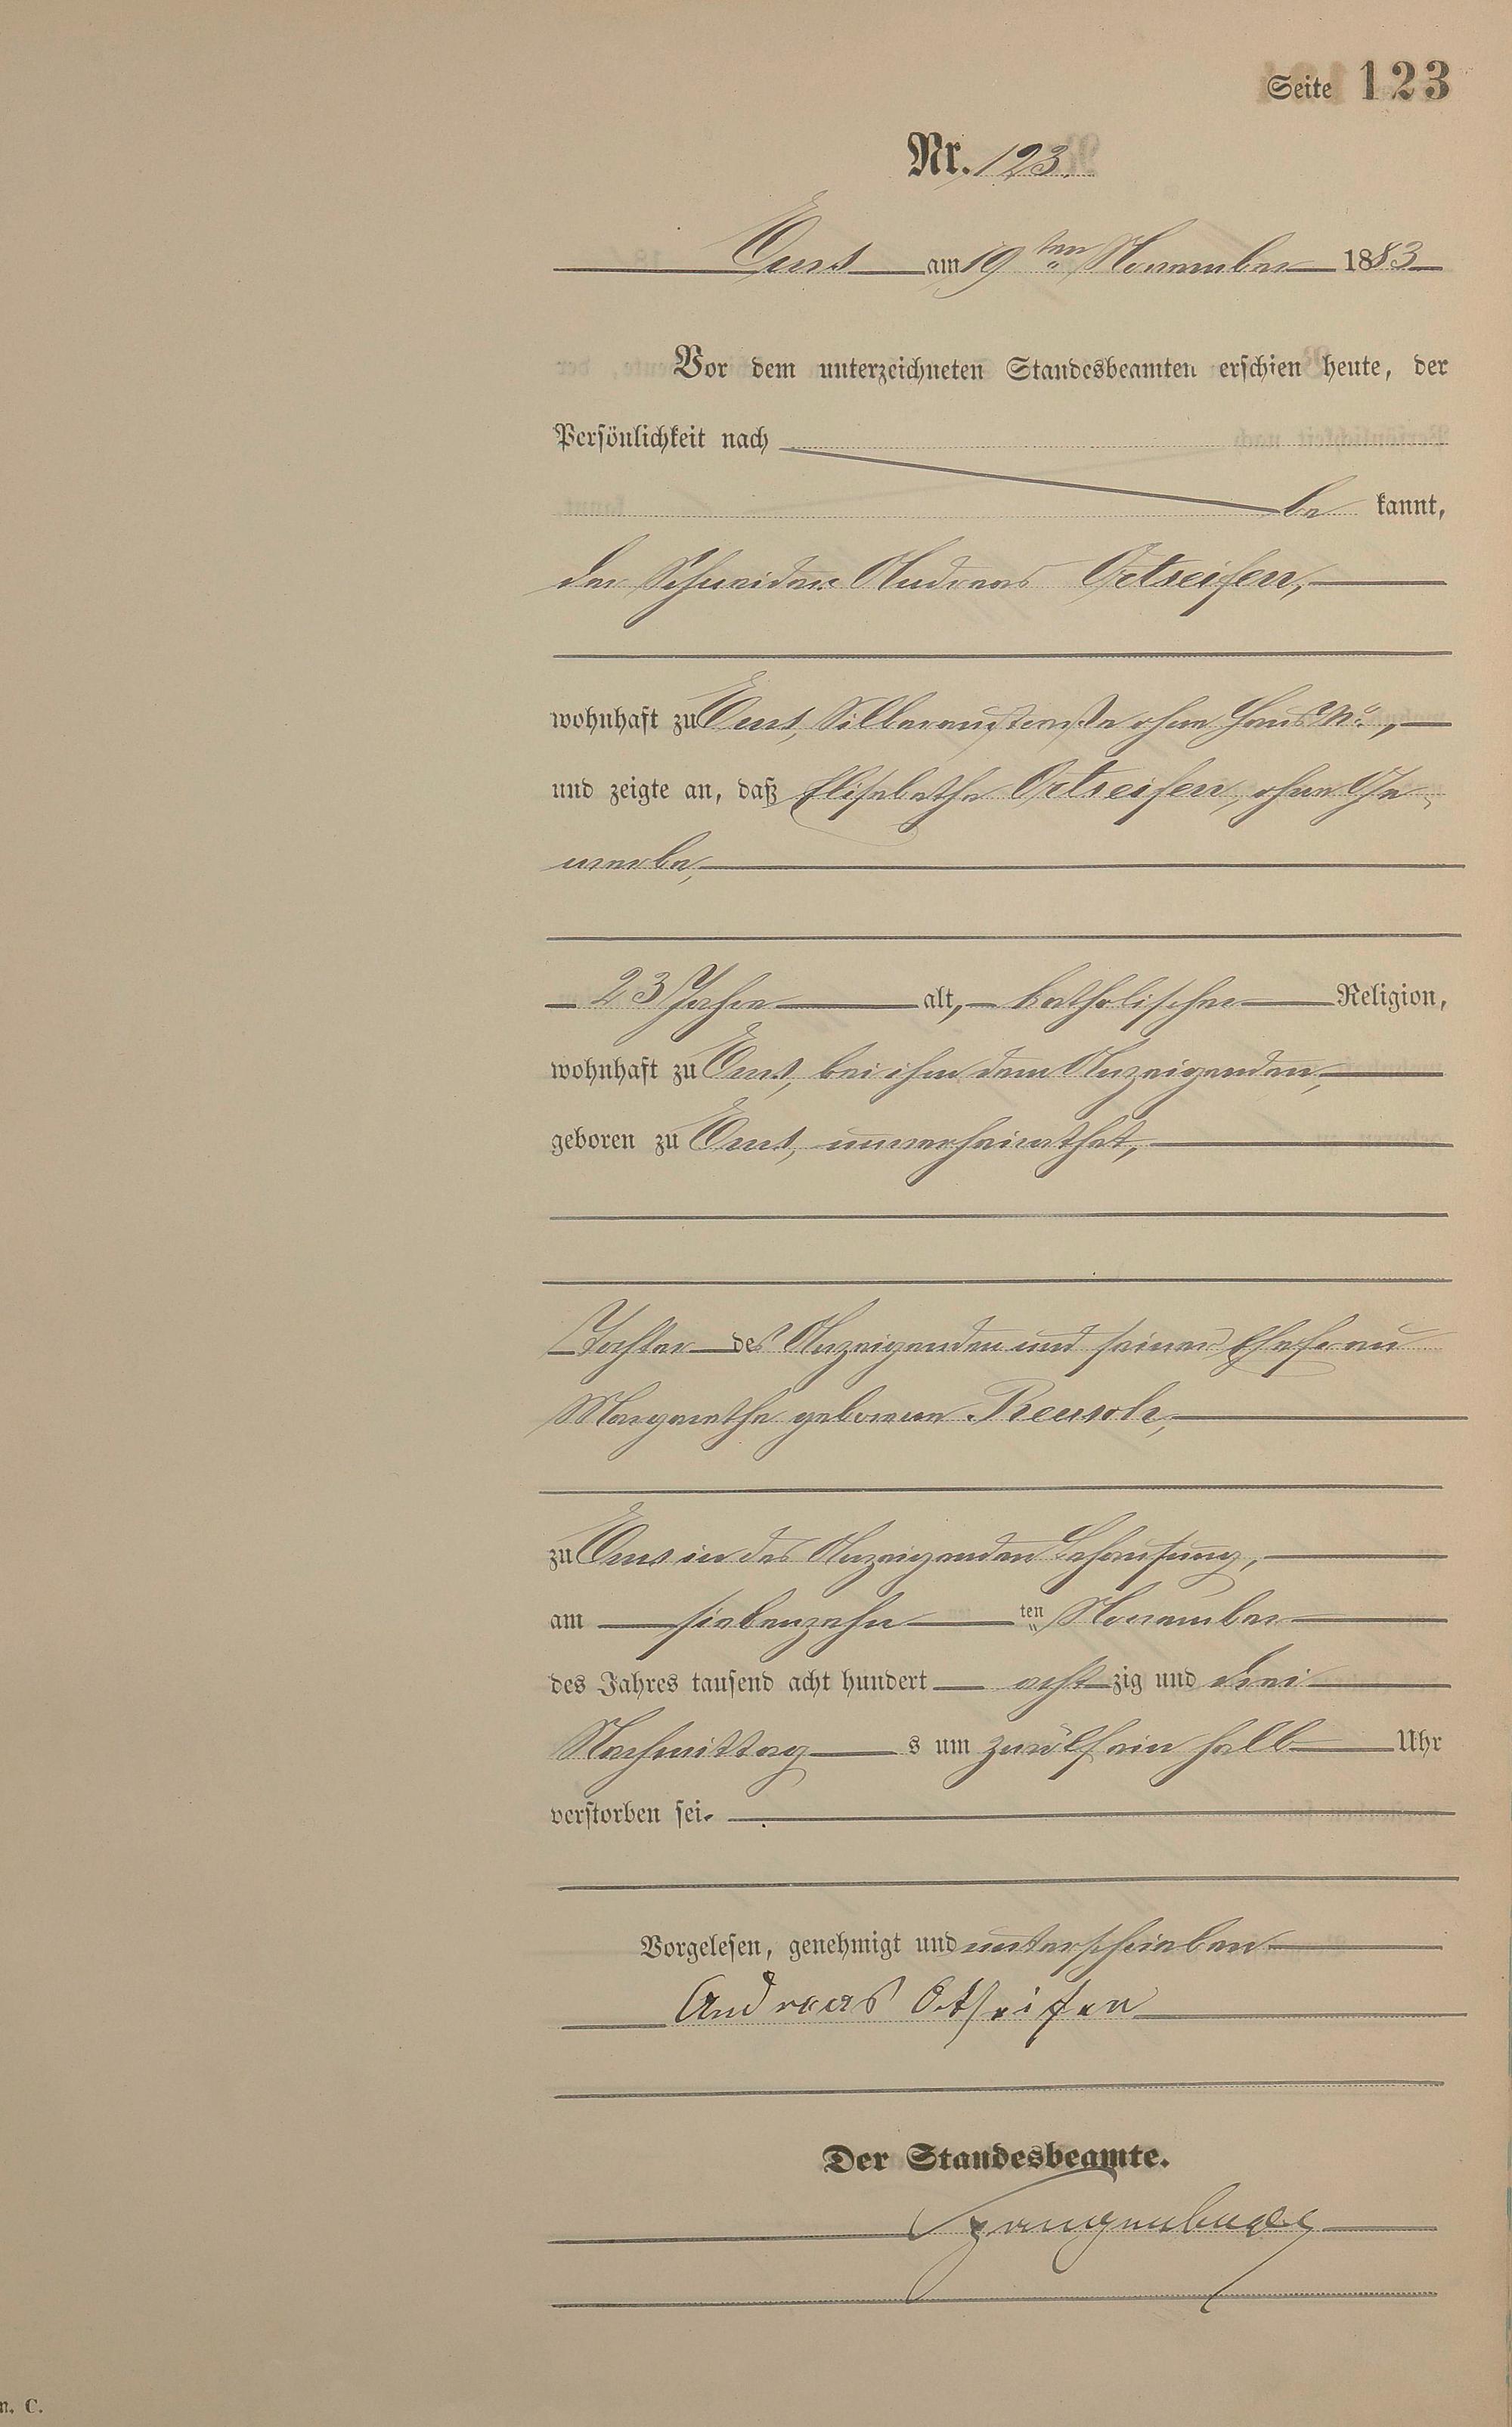 Seite 123
Nr. 123.
Ems am 19ten November 1883
Vor dem unterzeichneten Standesbeamten erschien heute, der
Persönlichkeit nach
be kannt,
der Schneider Andreas Ortseifen,
wohnhaft zu Ems, Silberaustraße ohne Haus No,
und zeigte an, daß Elisabetha Ortseifen, ohne Ge-
werbe,
23 Jahre alt, katholischer Religion,
wohnhaft zu Ems, bei ihm dem Anzeigenden,
geboren zu Ems, unverheirathet,
Tochter des Anzeigenden und seiner Ehefrau
Margarethe geborene Reusch,
zu Ems in des Anzeigenden Behausung,
am siebenzehn ten November
des Jahres tausend acht hundert acht zig und drei
Nachmittag s um zwölf ein halb Uhr
verstorben sei.
Vorgelesen, genehmigt und unterschrieben
Andreas Ortseifen
Der Standesbeamte.
n. C.